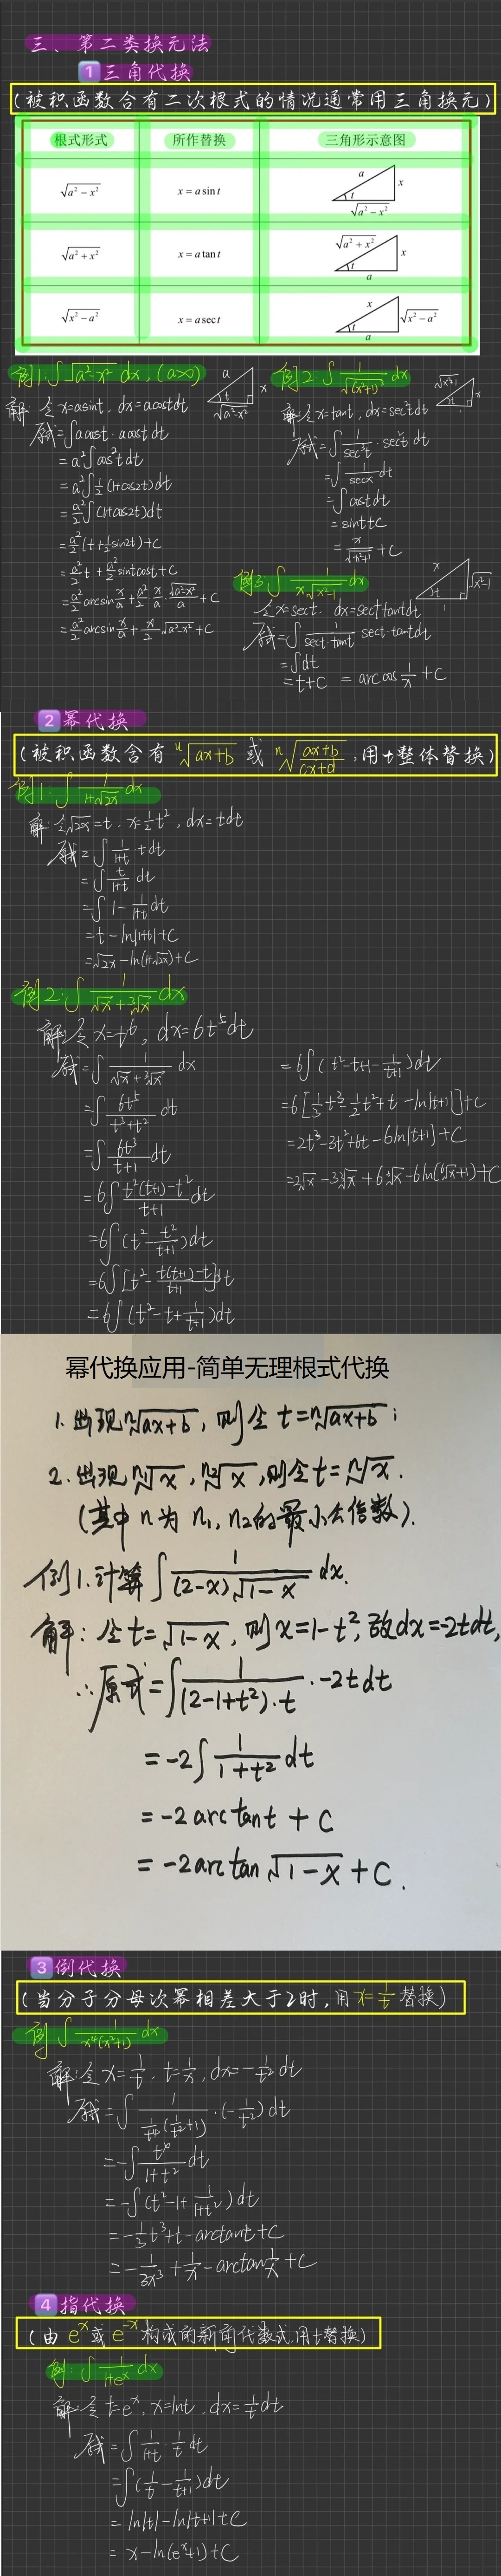 三、第二类换元法
1 三角代换
(被积函数含有二次根式的情况通常用三角换元)
根式形式 所作替换 三角形示意图
√(a²-x²) x = a sin t a x t √(a²-x²)
√(a²+x²) x = a tan t √(a²+x²) x t a
√(x²-a²) x = a sec t x √(x²-a²) t a
例1:∫√(a²-x²) dx, (a>0)
a x t √(a²-x²)
解:令x=asint, dx=acostdt
原式=∫acost·acostdt
=a²∫cos²tdt
=a²∫1/2(1+cos2t)dt
=a²/2∫(1+cos2t)dt
=a²/2(t+1/2sin2t)+C
=a²/2 t+a²/2 sintcost+C
=a²/2 arcsin x/a+a²/2·x/a·√(a²-x²)/a+C
=a²/2 arcsin x/a+x/2√(a²-x²)+C
例2:∫1/√(x²+1)³ dx
√(x²+1) x t 1
解:令x=tant, dx=sec²tdt
原式=∫1/sec³t·sec²t dt
=∫1/secx dt
=∫costdt
=sint+C
=x/√(x²+1)+C
例3:∫1/(x√(x²-1)) dx
x √(x²-1) t 1
令x=sect, dx=sect tantdt
原式=∫1/(sect·tant) sect·tantdt
=∫dt
=t+C = arccos 1/x+C
2 幂代换
(被积函数含有 ⁿ√(ax+b) 或 ⁿ√((ax+b)/(cx+d)),用t整体替换)
例1:∫1/(1+√2x) dx
解:令√2x=t, x=1/2t², dx=tdt
原式=∫1/(1+t)·tdt
=∫t/(1+t) dt
=∫1-1/(1+t)dt
=t-ln|1+t|+C
=√2x-ln(1+√2x)+C
例2:∫1/(√x+³√x) dx
解:令x=t⁶, dx=6t⁵dt
原式=∫1/(√x+³√x) dx
=∫6t⁵/(t³+t²) dt
=∫6t³/(t+1) dt
=6∫(t²(t+1)-t²)/(t+1) dt
=6∫(t²-t²/(t+1))dt
=6∫[t²-(t(t+1)-t)/(t+1)]dt
=6∫(t²-t+1/(t+1))dt
=6∫(t²-t+1-1/(t+1))dt
=6[1/3t³-1/2t²+t-ln|t+1|]+C
=2t³-3t²+6t-6ln|t+1|+C
=2√x-3³√x+6⁶√x-6ln(⁶√x+1)+C
幂代换应用-简单无理根式代换
1.出现ⁿ√(ax+b),则令t=ⁿ√(ax+b);
2.出现ⁿ¹√x,ⁿ²√x,则令t=ⁿ√x.
(其中n为n₁,n₂的最小公倍数).
例1.计算∫1/((2-x)√(1-x)) dx.
解:令t=√(1-x),则x=1-t²,故dx=-2tdt,
∴原式=∫1/((2-1+t²)·t)·-2tdt
=-2∫1/(1+t²) dt
=-2arctant+C
=-2arctan√(1-x)+C.
3 倒代换
(当分子分母次幂相差大于2时,用x=1/t替换)
例∫1/(x⁴(x²+1)) dx
解:令x=1/t, t=1/x, dx=-1/t²dt
原式=∫1/(1/t⁴(1/t²+1))·(-1/t²)dt
=-∫t⁴/(1+t²) dt
=-∫(t²-1+1/(1+t²))dt
=-1/3t³+t-arctant+C
=-1/(3x³)+1/x-arctan1/x+C
4 指代换
(由eˣ或e⁻ˣ构成的新的代数式,用t替换)
例:∫1/(1+eˣ) dx
解:令t=eˣ, x=lnt, dx=1/t dt
原式=∫1/(1+t)·1/t dt
=∫(1/t-1/(t+1))dt
=ln|t|-ln|t+1|+C
=x-ln(eˣ+1)+C